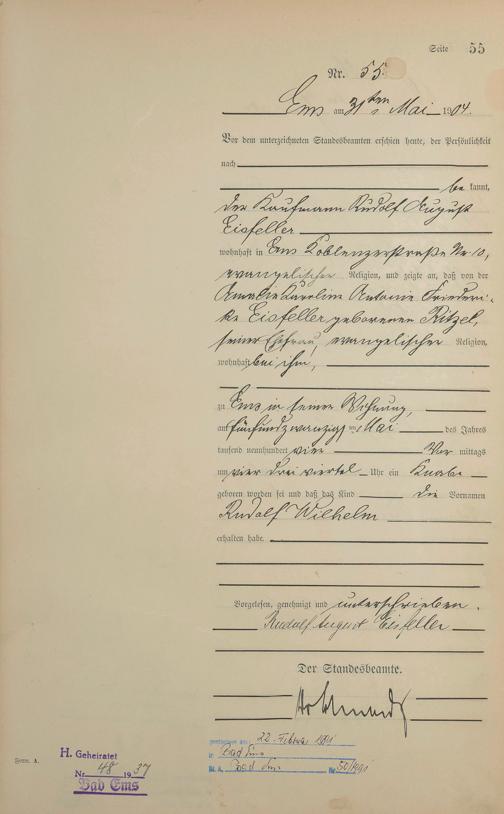 Seite 55
Nr. 55
Ems am 31ten Mai 1904.
Vor dem unterzeichneten Standesbeamten erschien heute, der Persönlichkeit
nach
bekannt,
der Kaufmann Rudolf August
Eisfeller
wohnhaft in Ems Koblenzerstraße Nr 10,
evangelischer Religion, und zeigte an, daß von der
Amalie Karoline Antonie Friederi-
ke Eisfeller geborenen Ritzel,
seiner Ehefrau, evangelischer Religion,
wohnhaft bei ihm,
zu Ems in seiner Wohnung,
am fünfundzwanzigsten Mai des Jahres
tausend neunhundert vier Vor mittags
um vier drei viertel Uhr ein Knabe
geboren worden sei und daß das Kind die Vornamen
Rudolf Wilhelm
erhalten habe.
Vorgelesen, genehmigt und unterschrieben.
Rudolf August Eisfeller
Der Standesbeamte.
Form. A.
H. Geheiratet
Nr. 48 1937
Bad Ems
gestorben am: 22. Februar 1991
in Bad Ems
StA. Bad Ems Nr. 50/1991